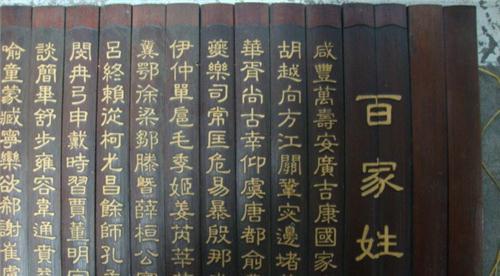 百家姓
咸豐萬壽安廣吉康國家
胡越向方江關鞏灾邊堵
華胥尚古幸仰虞唐都俞
夔樂司常匡危易暴殷那
伊仲單扈毛季姬姜芮莘
冀鄂徐梁鄒滕暨薛桓公
呂終賴從柯尤昌餘師孔
閔冉弓申戴時習賈董明
談簡畢舒步雍容韋通賁
喻童蒙臧寧欒欲郗謝崔